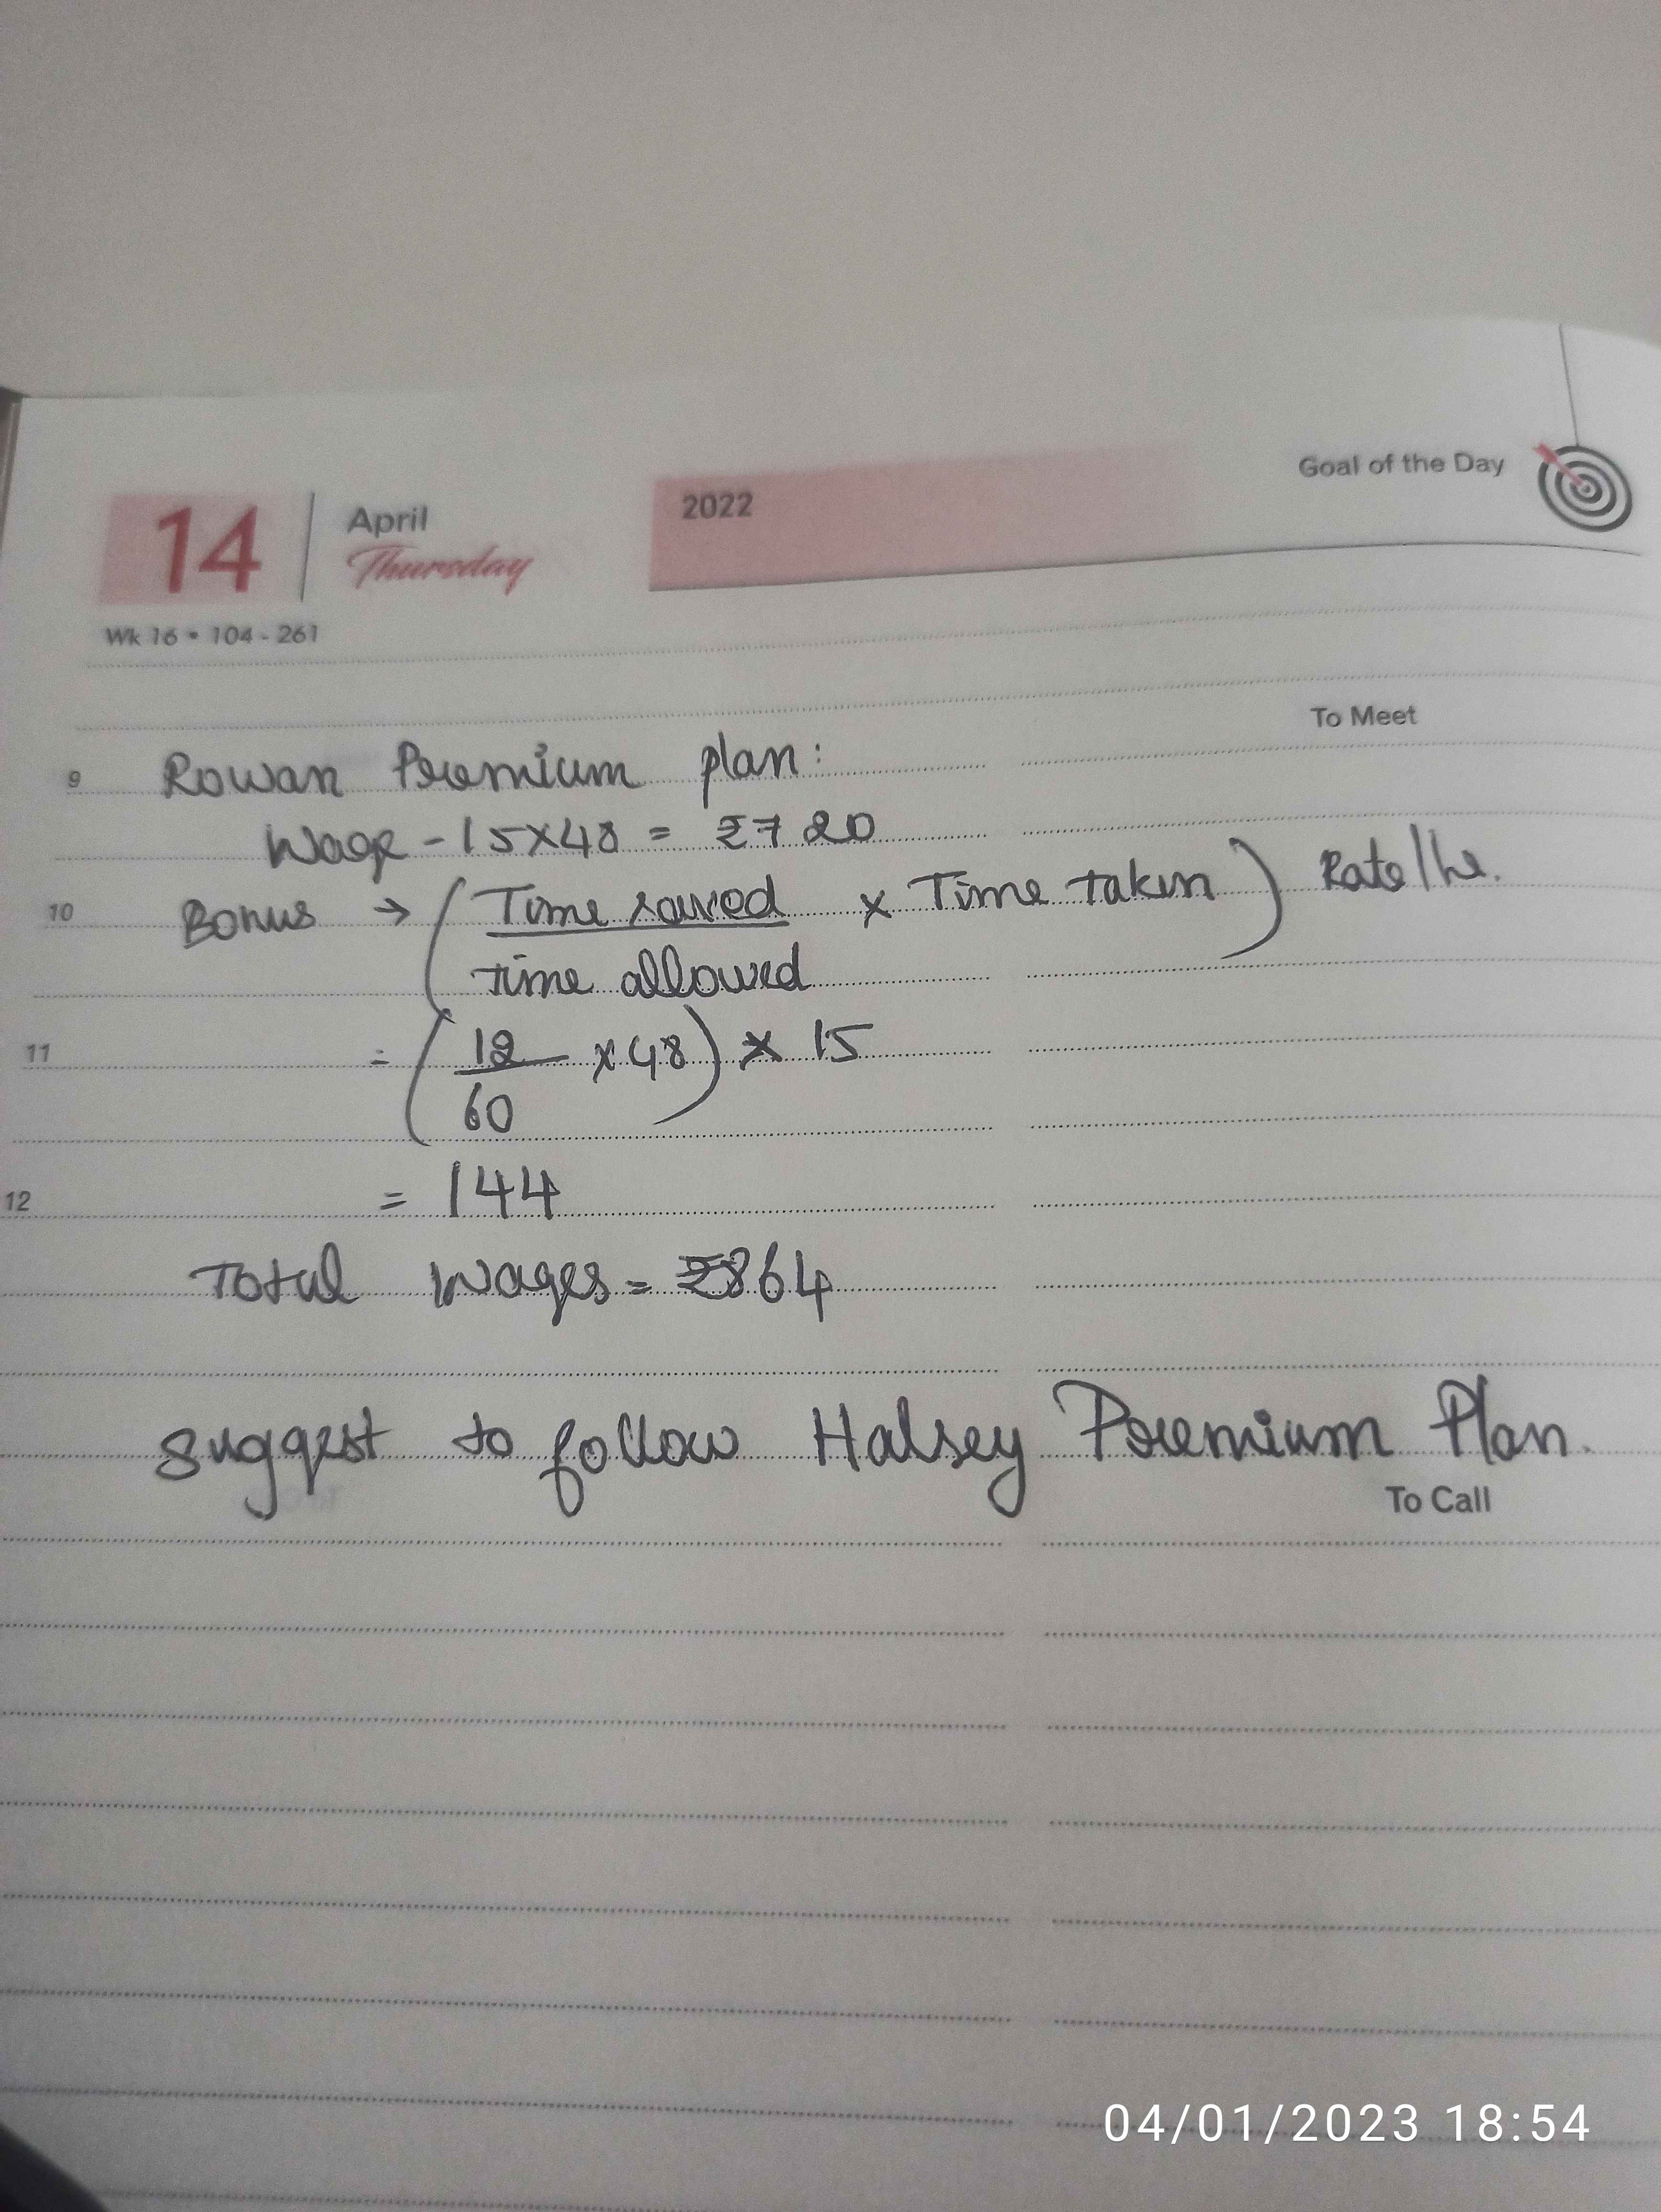 Goal of the Day
14 April 2022
Thursday
Wk 16 • 104 - 261
To Meet
9 Rowan Premium plan:
Wage - 15×48 = ₹720
10 Bonus → ( Time saved × Time taken ) Rate/hr.
Time allowed
11 = ( 12 × 48 ) × 15
60
12 = 144
Total Wages = ₹864
Suggest to follow Halsey Premium Plan.
To Call
04/01/2023 18:54